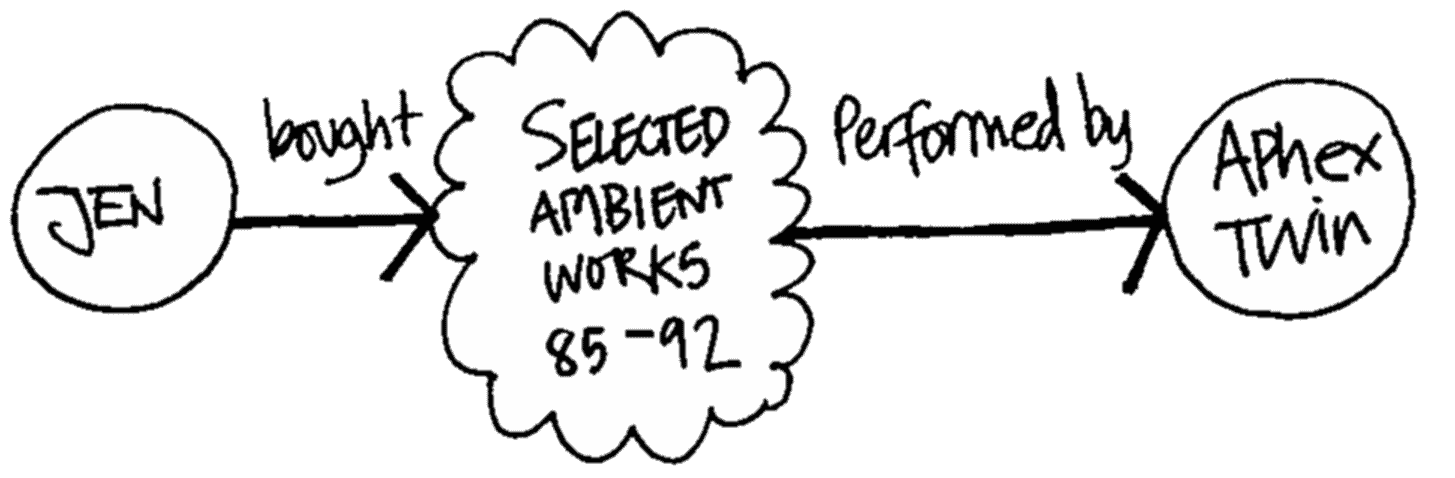 JEN
bought
SELECTED
AMBIENT
WORKS
85-92
Performed by
APhex
TWin